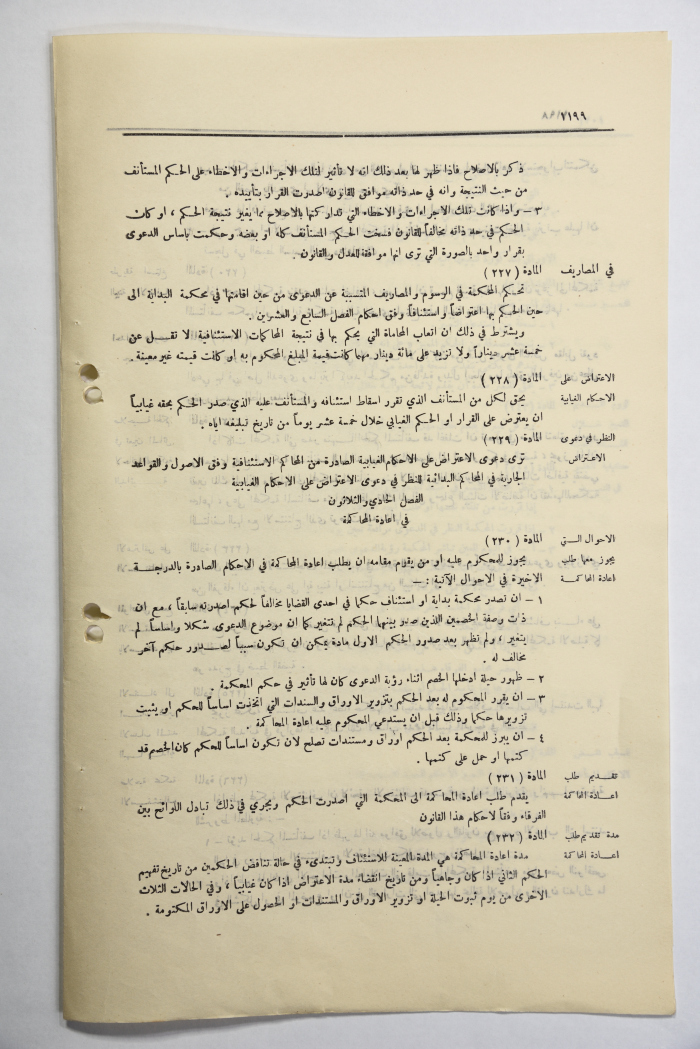 ١٩٩
ذكر بالاصلاح فاذا ظهر لها بعد ذلك انه لا تأثير لتلك الاجراءات والاخطاء على الحكم المستأنف
من حيث النتيجة وانه في حد ذاته موافق للقانون اصدرت القرار بتأييده .
٣ – واذا كانت تلك الاجراءات والاخطاء التي تداركتها بالاصلاح مما يغير نتيجة الحكم ، او كان
الحكم في حد ذاته مخالفاً للقانون فسخت الحكم المستأنف كله او بعضه وحكمت باساس الدعوى
بقرار واحد بالصورة التي ترى انها موافقة للعدل والقانون .
في المصاريف المادة ( ٢٢٧ )
تحكم المحكمة في الرسوم والمصاريف المتسببة عن الدعوى من حين اقامتها في محكمة البداية الى
حين الحكم بها اعتراضاً واستئنافاً وفق احكام الفصل السابع والعشرين .
ويشترط في ذلك ان اتعاب المحاماة التي يحكم بها في نتيجة المحاكمات الاستئنافية لا تقل عن
خمسة عشر ديناراً ولا تزيد على مائة دينار مهما كانت قيمة المبلغ المحكوم به او كانت قيمته غير معينة .
الاعتراض على المادة ( ٢٢٨ )
الاحكام الغيابية يحق لكل من المستأنف الذي تقرر اسقاط استئنافه والمستأنف عليه الذي صدر الحكم بحقه غيابياً
ان يعترض على القرار او الحكم الغيابي خلال خمسة عشر يوماً من تاريخ تبليغه اياه .
النظر في دعوى المادة ( ٢٢٩ )
الاعتراض ترى دعوى الاعتراض على الاحكام الغيابية الصادرة من المحاكم الاستئنافية وفق الاصول والقواعد
الجارية في المحاكم البدائية للنظر في دعوى الاعتراض على الاحكام الغيابية
الفصل الحادي والثلاثون
في اعادة المحاكمة
الاحوال التي المادة ( ٢٣٠ )
يجوز معها طلب يجوز للمحكوم عليه او من يقوم مقامه ان يطلب اعادة المحاكمة في الاحكام الصادرة بالدرجة
اعادة المحاكمة الاخيرة في الاحوال الآتية : –
١ – ان تصدر محكمة بداية او استئناف حكما في احدى القضايا مخالفاً لحكم اصدرته سابقاً ، مع ان
ذات وصفة الخصمين اللذين صدر بينهما الحكم لم تتغير كما ان موضوع الدعوى شكلا واساساً لم
يتغير ، ولم تظهر بعد صدور الحكم الاول مادة يمكن ان تكون سبباً لصدور حكم آخر
مخالف له .
٢ – ظهور حيلة أدخلها الخصم اثناء رؤية الدعوى كان لها تأثير في حكم المحكمة .
٣ – ان يقرر المحكوم له بعد الحكم بتزوير الاوراق والسندات التي اتخذت اساساً للحكم او يثبت
تزويرها حكما وذلك قبل ان يستدعي المحكوم عليه اعادة المحاكمة .
٤ – ان يبرز للمحكمة بعد الحكم اوراق ومستندات تصلح لان تكون اساسا للحكم كان الخصم قد
كتمها او حمل على كتمها .
تقديم طلب المادة ( ٢٣١ )
اعادة المحاكمة يقدم طلب اعادة المحاكمة الى المحكمة التي اصدرت الحكم ويجري في ذلك تبادل اللوائح بين
الفرقاء وفقاً لاحكام هذا القانون
مدة تقديم طلب المادة ( ٢٣٢ )
اعادة المحاكمة مدة اعادة المحاكمة هي المدة المعينة للاستئناف وتبتدىء في حالة تناقض الحكمين من تاريخ تفهيم
الحكم الثاني اذا كان وجاهياً ومن تاريخ انقضاء مدة الاعتراض اذا كان غيابياً ، وفي الحالات الثلاث
الاخرى من يوم ثبوت الحيلة او تزوير الاوراق والمستندات او الحصول على الاوراق المكتومة .